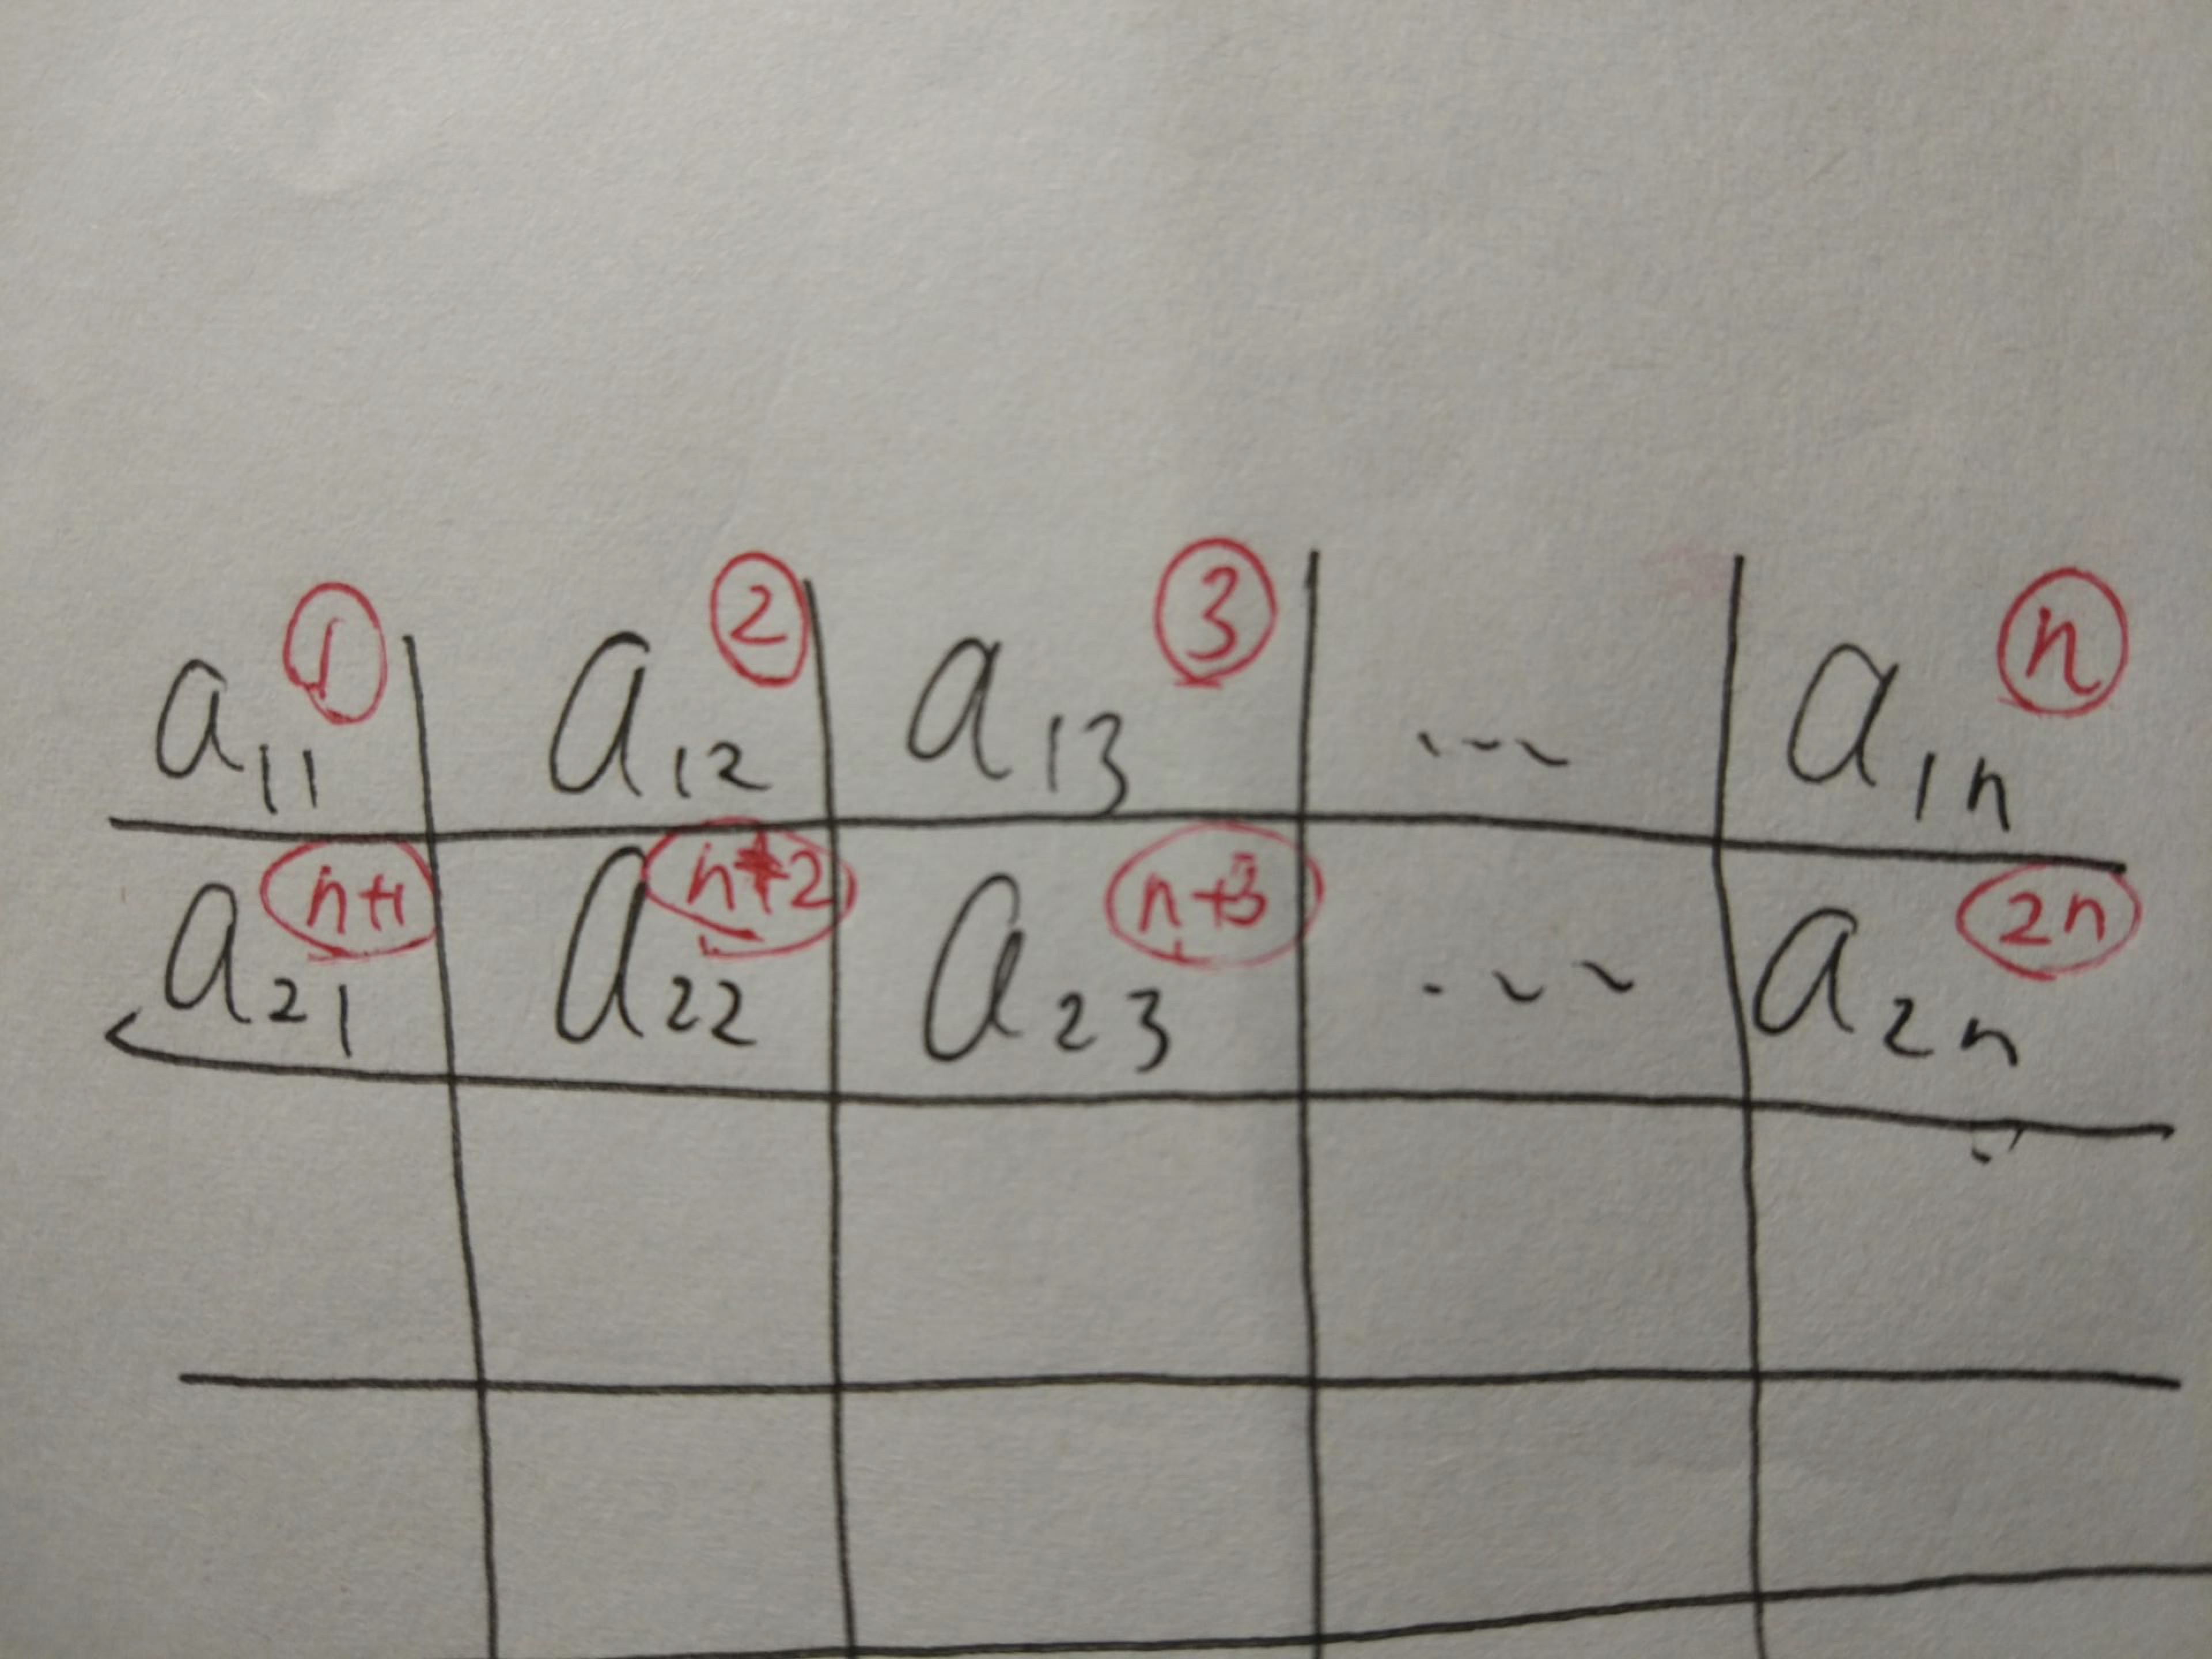 a₁₁ ① a₁₂ ② a₁₃ ③ ... a₁ₙ ⓝ
a₂₁ n+1 a₂₂ n+2 a₂₃ n+3 ... a₂ₙ 2n